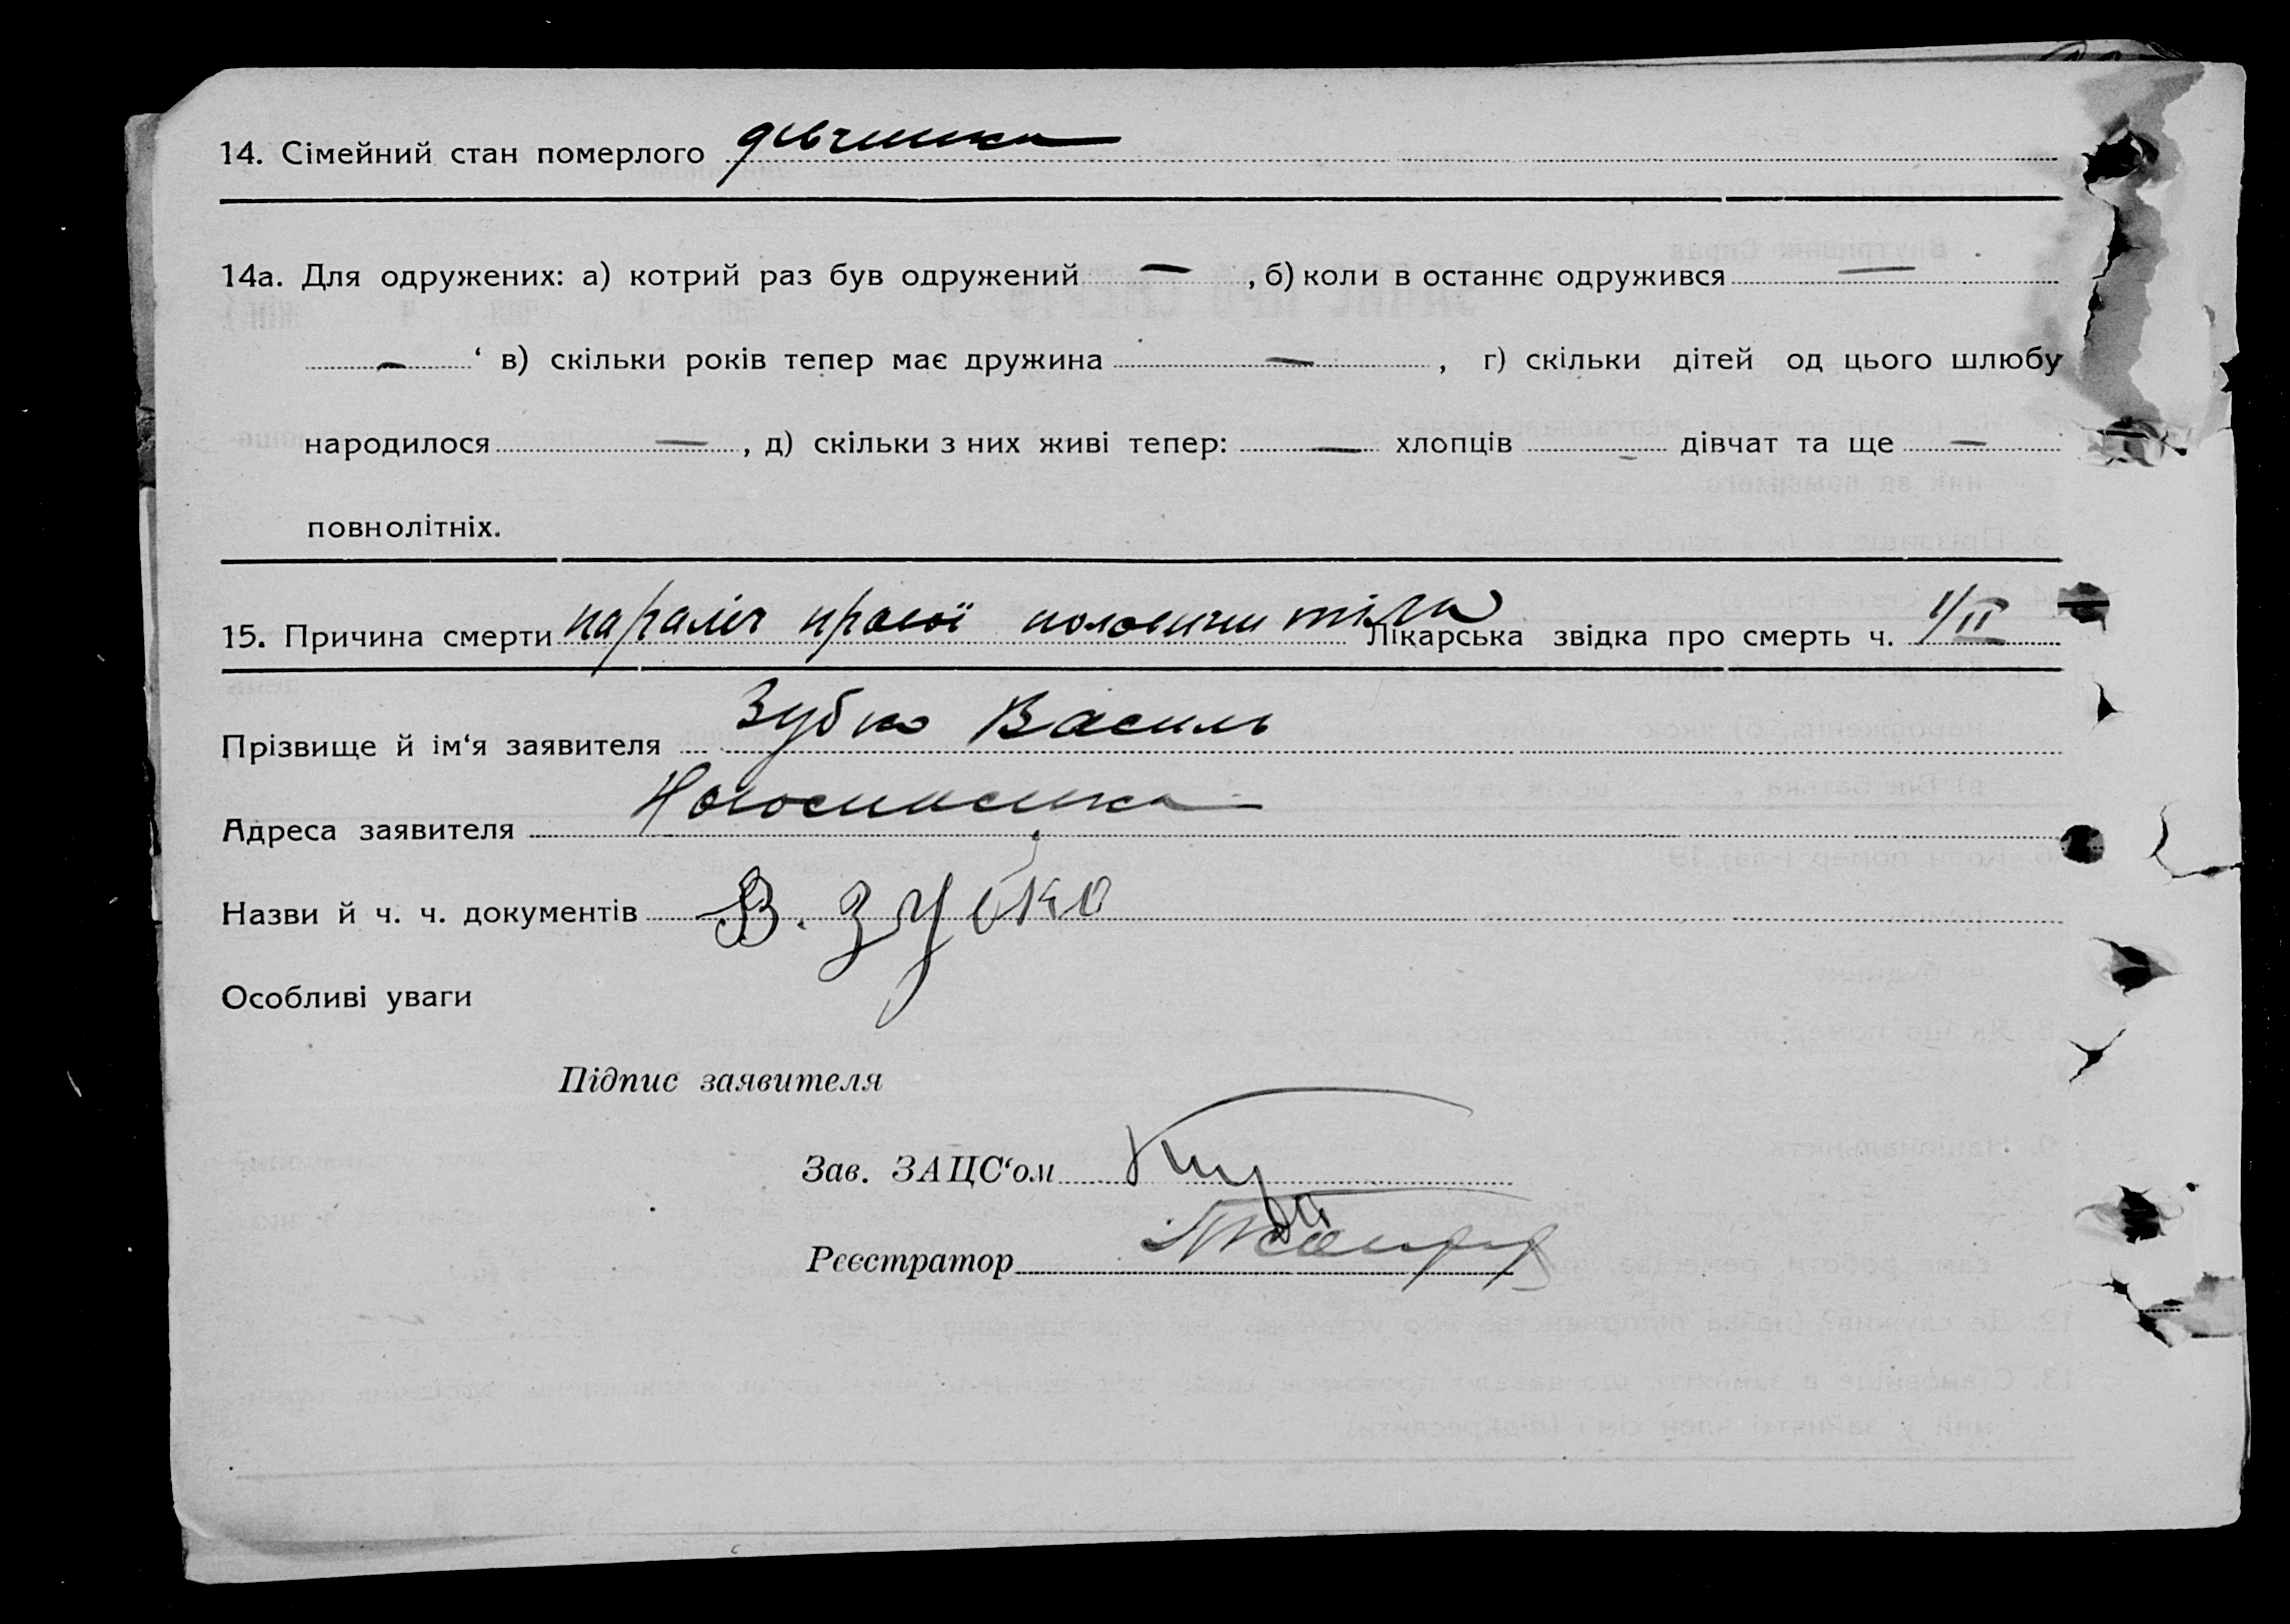 14. Сімейний стан померлого дівчинка
14а. Для одружених: а) котрий раз був одружений —, б) коли в останнє одружився —
— ‘ в) скільки років тепер має дружина —, г) скільки дітей од цього шлюбу
народилося —, д) скільки з них живі тепер: — хлопців — дівчат та ще —
повнолітніх.
15. Причина смерти параліч правої половини тіла Лікарська звідка про смерть ч. 1/II
Прізвище й ім‘я заявителя Зубко Василь
Адреса заявителя
Назви й ч. ч. документів В. Зубко
Особливі уваги
Підпис заявителя
Зав. ЗАЦС‘ом
Реєстратор